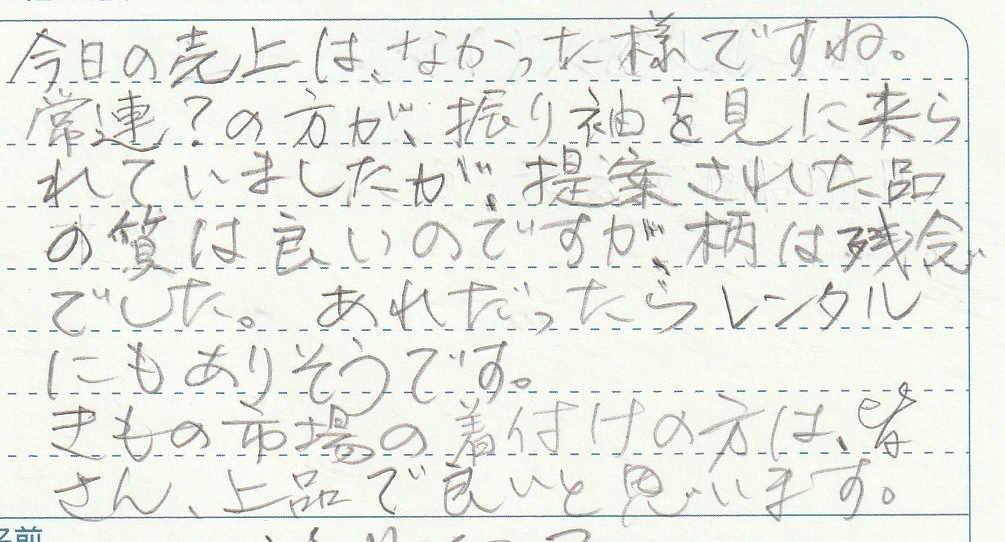 今日の売上は、なかった様ですね。
常連?の方が、振り袖を見に来ら
れていましたが、提案された品
の質は良いのですが、柄は残念
でした。あれだったらレンタル
にもありそうです。
きもの市場の着付けの方は、皆
さん、上品で良いと思います。